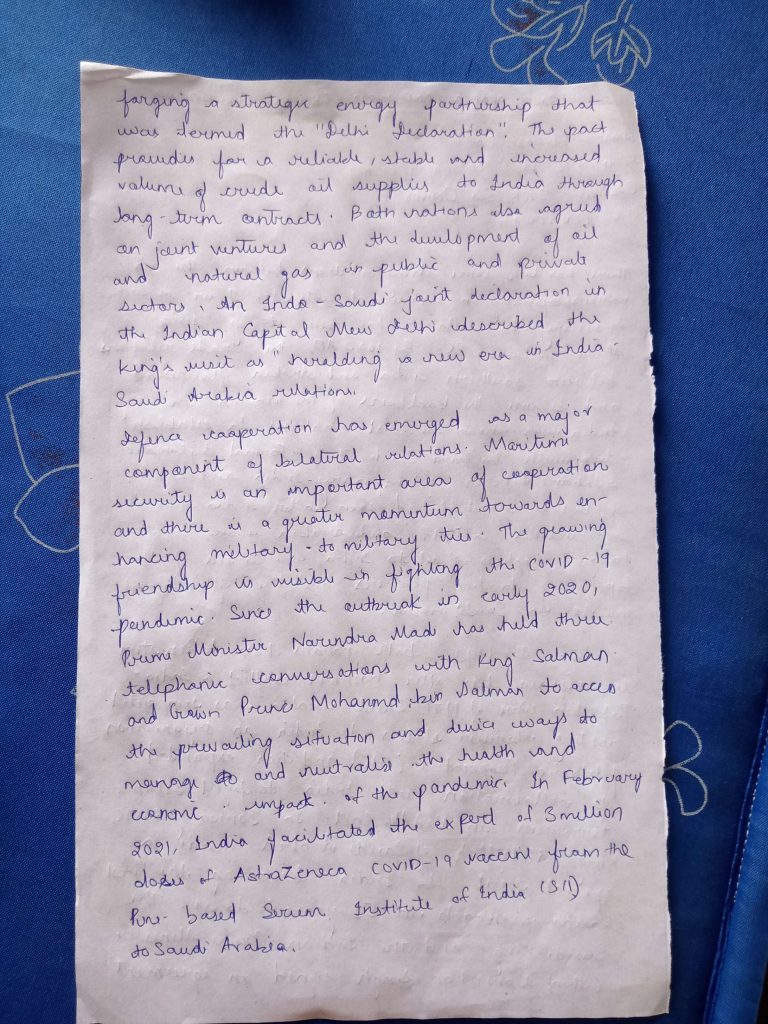 forging a strategic energy partnership that
was termed the "Delhi Declaration". The pact
provides for a reliable, stable and increased
volume of crude oil supplies to India through
long-term contracts. Both nations also agreed
on joint ventures and the development of oil
and natural gas in public and private
sectors. An Indo-Saudi joint declaration in
the Indian Capital New Delhi described the
king's visit as "heralding a new era in India-
Saudi Arabia relations.
Defence cooperation has emerged as a major
component of bilateral relations. Maritime
security is an important area of cooperation
and there is a greater momentum towards en-
hancing military-to military ties. The growing
friendship is visible in fighting the COVID-19
pandemic. Since the outbreak in early 2020,
Prime Minister Narendra Modi has held three
telephonic conversations with King Salman
and Crown Prince Mohammd bin Salman to acces
the prevailing situation and device ways to
manage and neutralise the health and
economic impact of the pandemic. In February
2021, India facilitated the export of 3 million
doses of AstraZeneca COVID-19 vaccine from the
Pune-based Serum Institute of India (SII)
to Saudi Arabia.